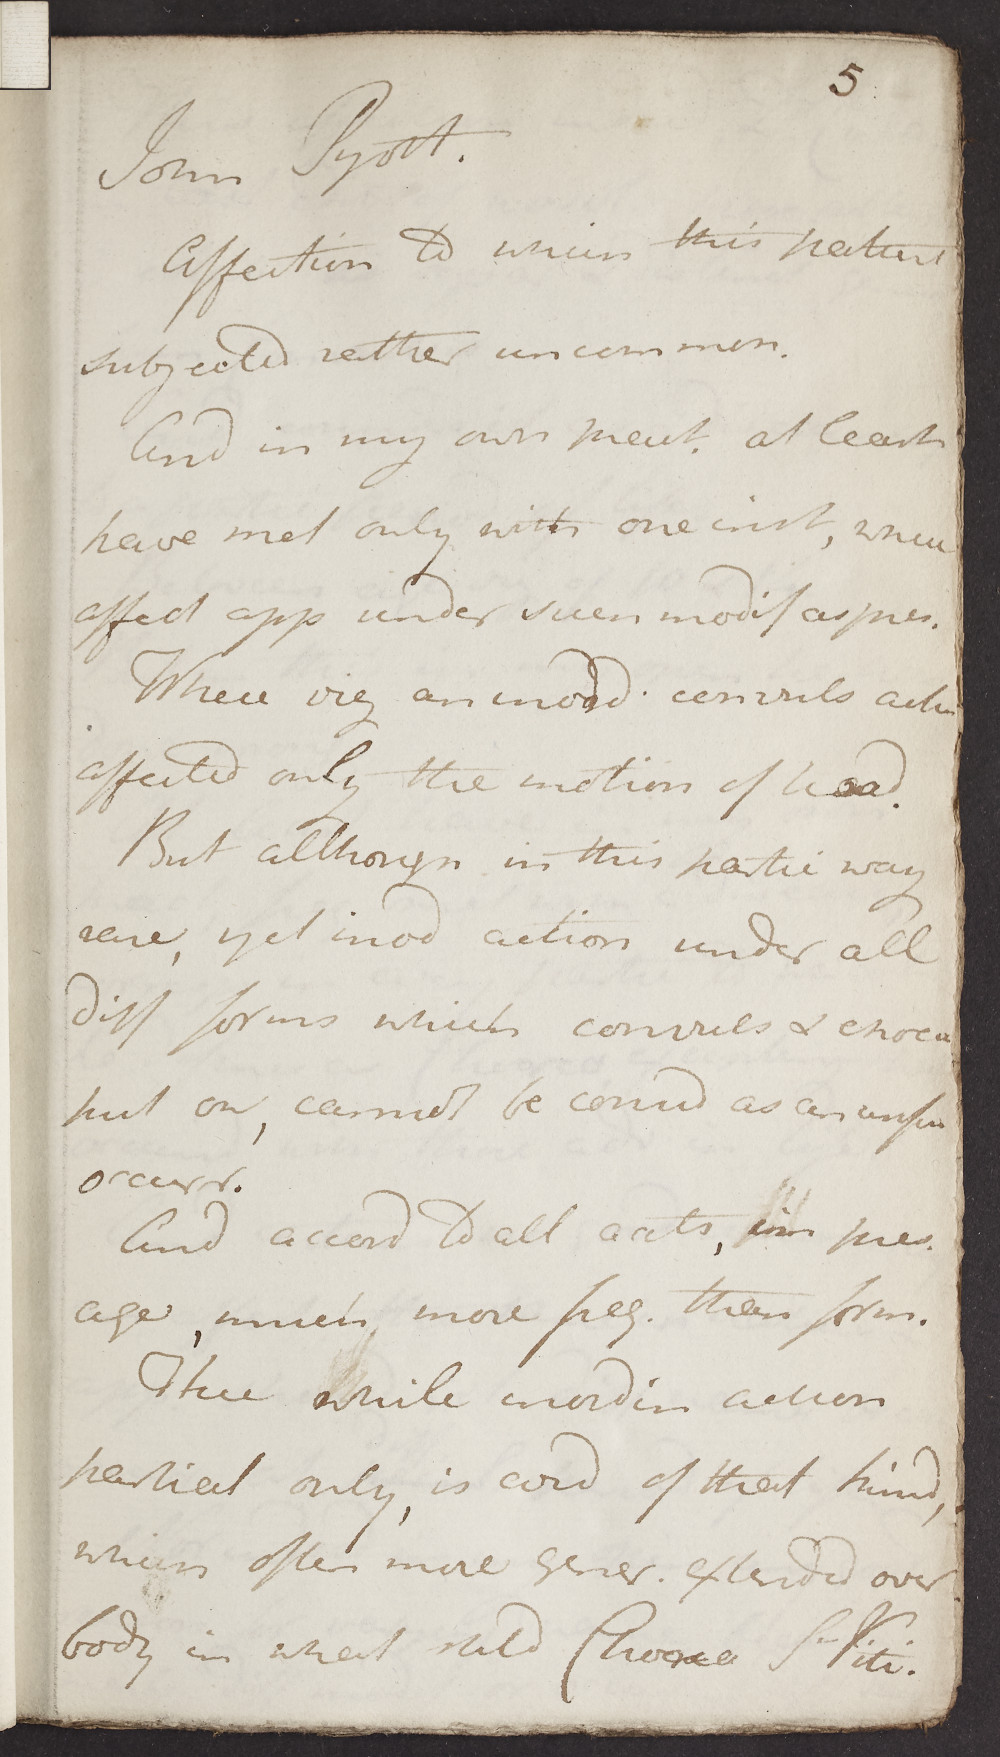 5
John Pyott.
Affection to which this patient
subjected rather uncommon.
And in my own pract. at least
have met only with one inst, where
affect app under such modif as pres.
Where viz an inord. convuls action
affected only the motion of head.
But although in this partic way
rare, yet inod action under all
diff forms which convuls & chorea
put on, cannot be consid as an unfre
occurr.
And accord to all acts, in pres.
age, much more freq. than form.
Thee while inordin action
partial only, is cord of that kind,
which often more gener. extended over
body in what stild Chorea Sti Viti.